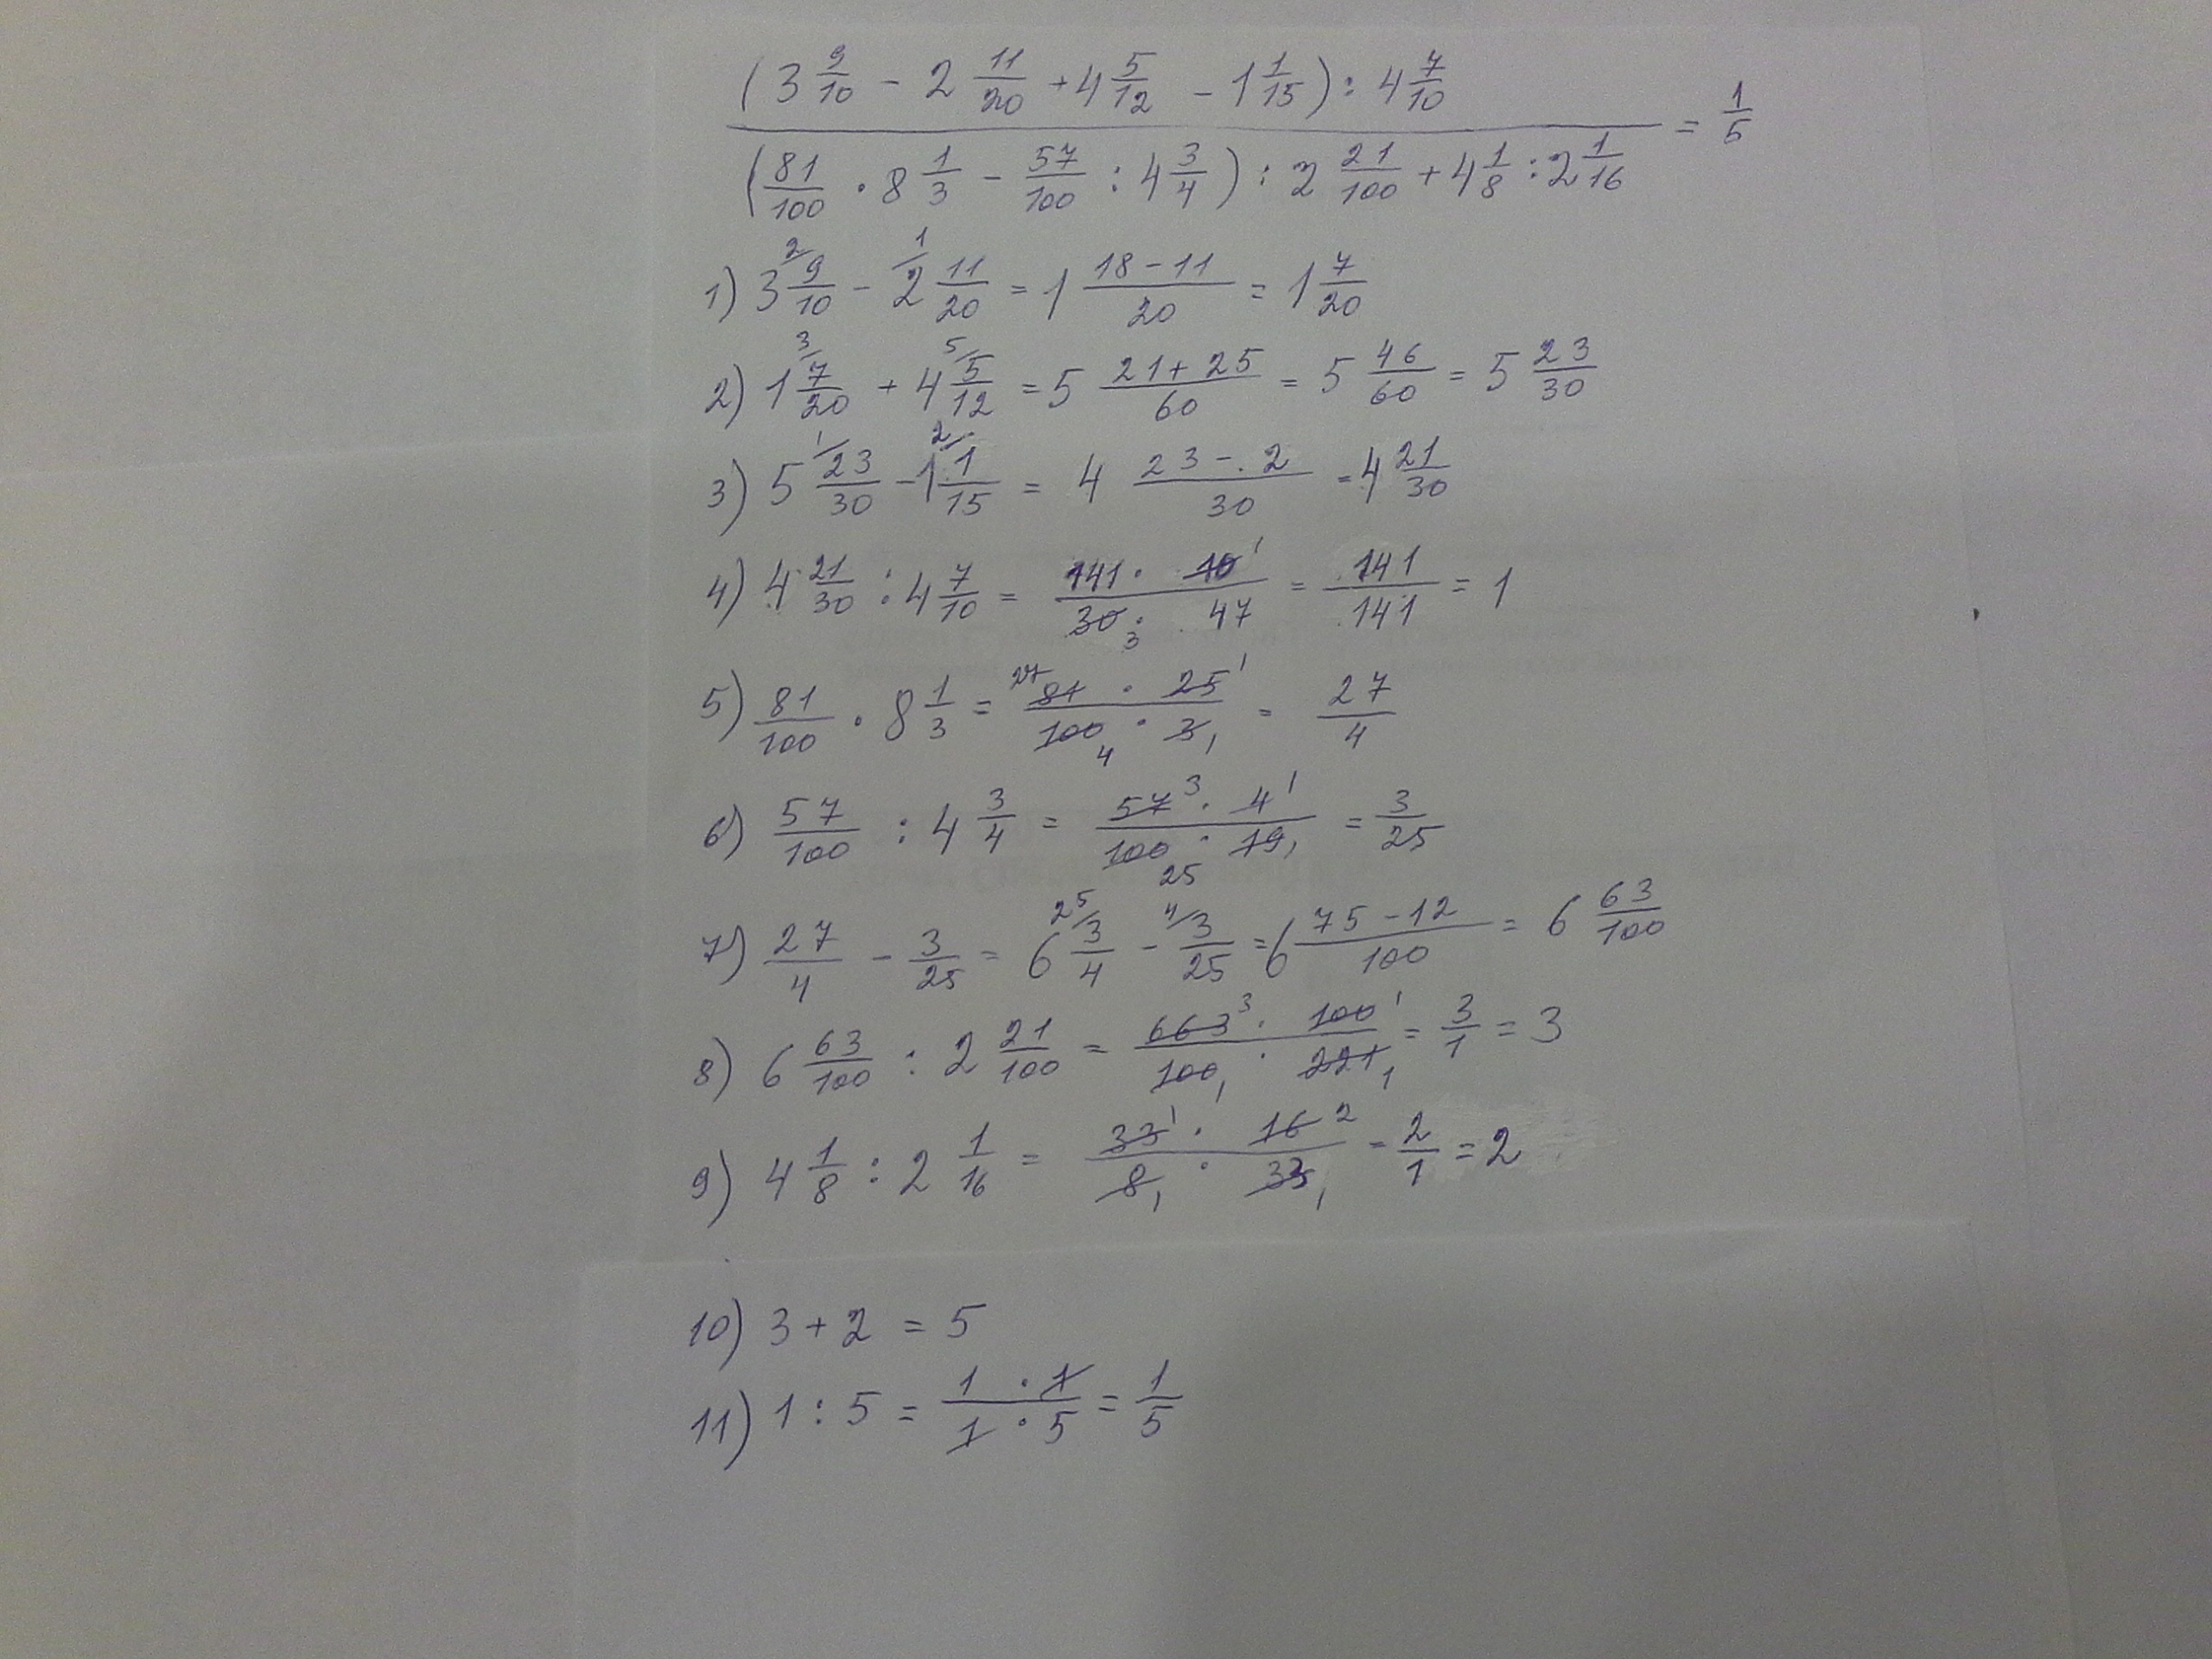 (3 9/10 - 2 11/20 + 4 5/12 - 1 1/15) : 4 7/10
= 1/5
(81/100 · 8 1/3 - 57/100 : 4 3/4) : 2 21/100 + 4 1/8 : 2 1/16
1) 3 9/10 - 2 11/20 = 1 (18-11)/20 = 1 7/20
2) 1 7/20 + 4 5/12 = 5 (21+25)/60 = 5 46/60 = 5 23/30
3) 5 23/30 - 1 1/15 = 4 (23-2)/30 = 4 21/30
4) 4 21/30 : 4 7/10 = (141 · 10)/(30 · 47) = 141/141 = 1
5) 81/100 · 8 1/3 = (81 · 25)/(100 · 3) = 27/4
6) 57/100 : 4 3/4 = (57 · 4)/(100 · 19) = 3/25
7) 27/4 - 3/25 = 6 3/4 - 3/25 = 6 (75-12)/100 = 6 63/100
8) 6 63/100 : 2 21/100 = (663 · 100)/(100 · 221) = 3/1 = 3
9) 4 1/8 : 2 1/16 = (33 · 16)/(8 · 33) = 2/1 = 2
10) 3 + 2 = 5
11) 1 : 5 = (1 · 1)/(1 · 5) = 1/5